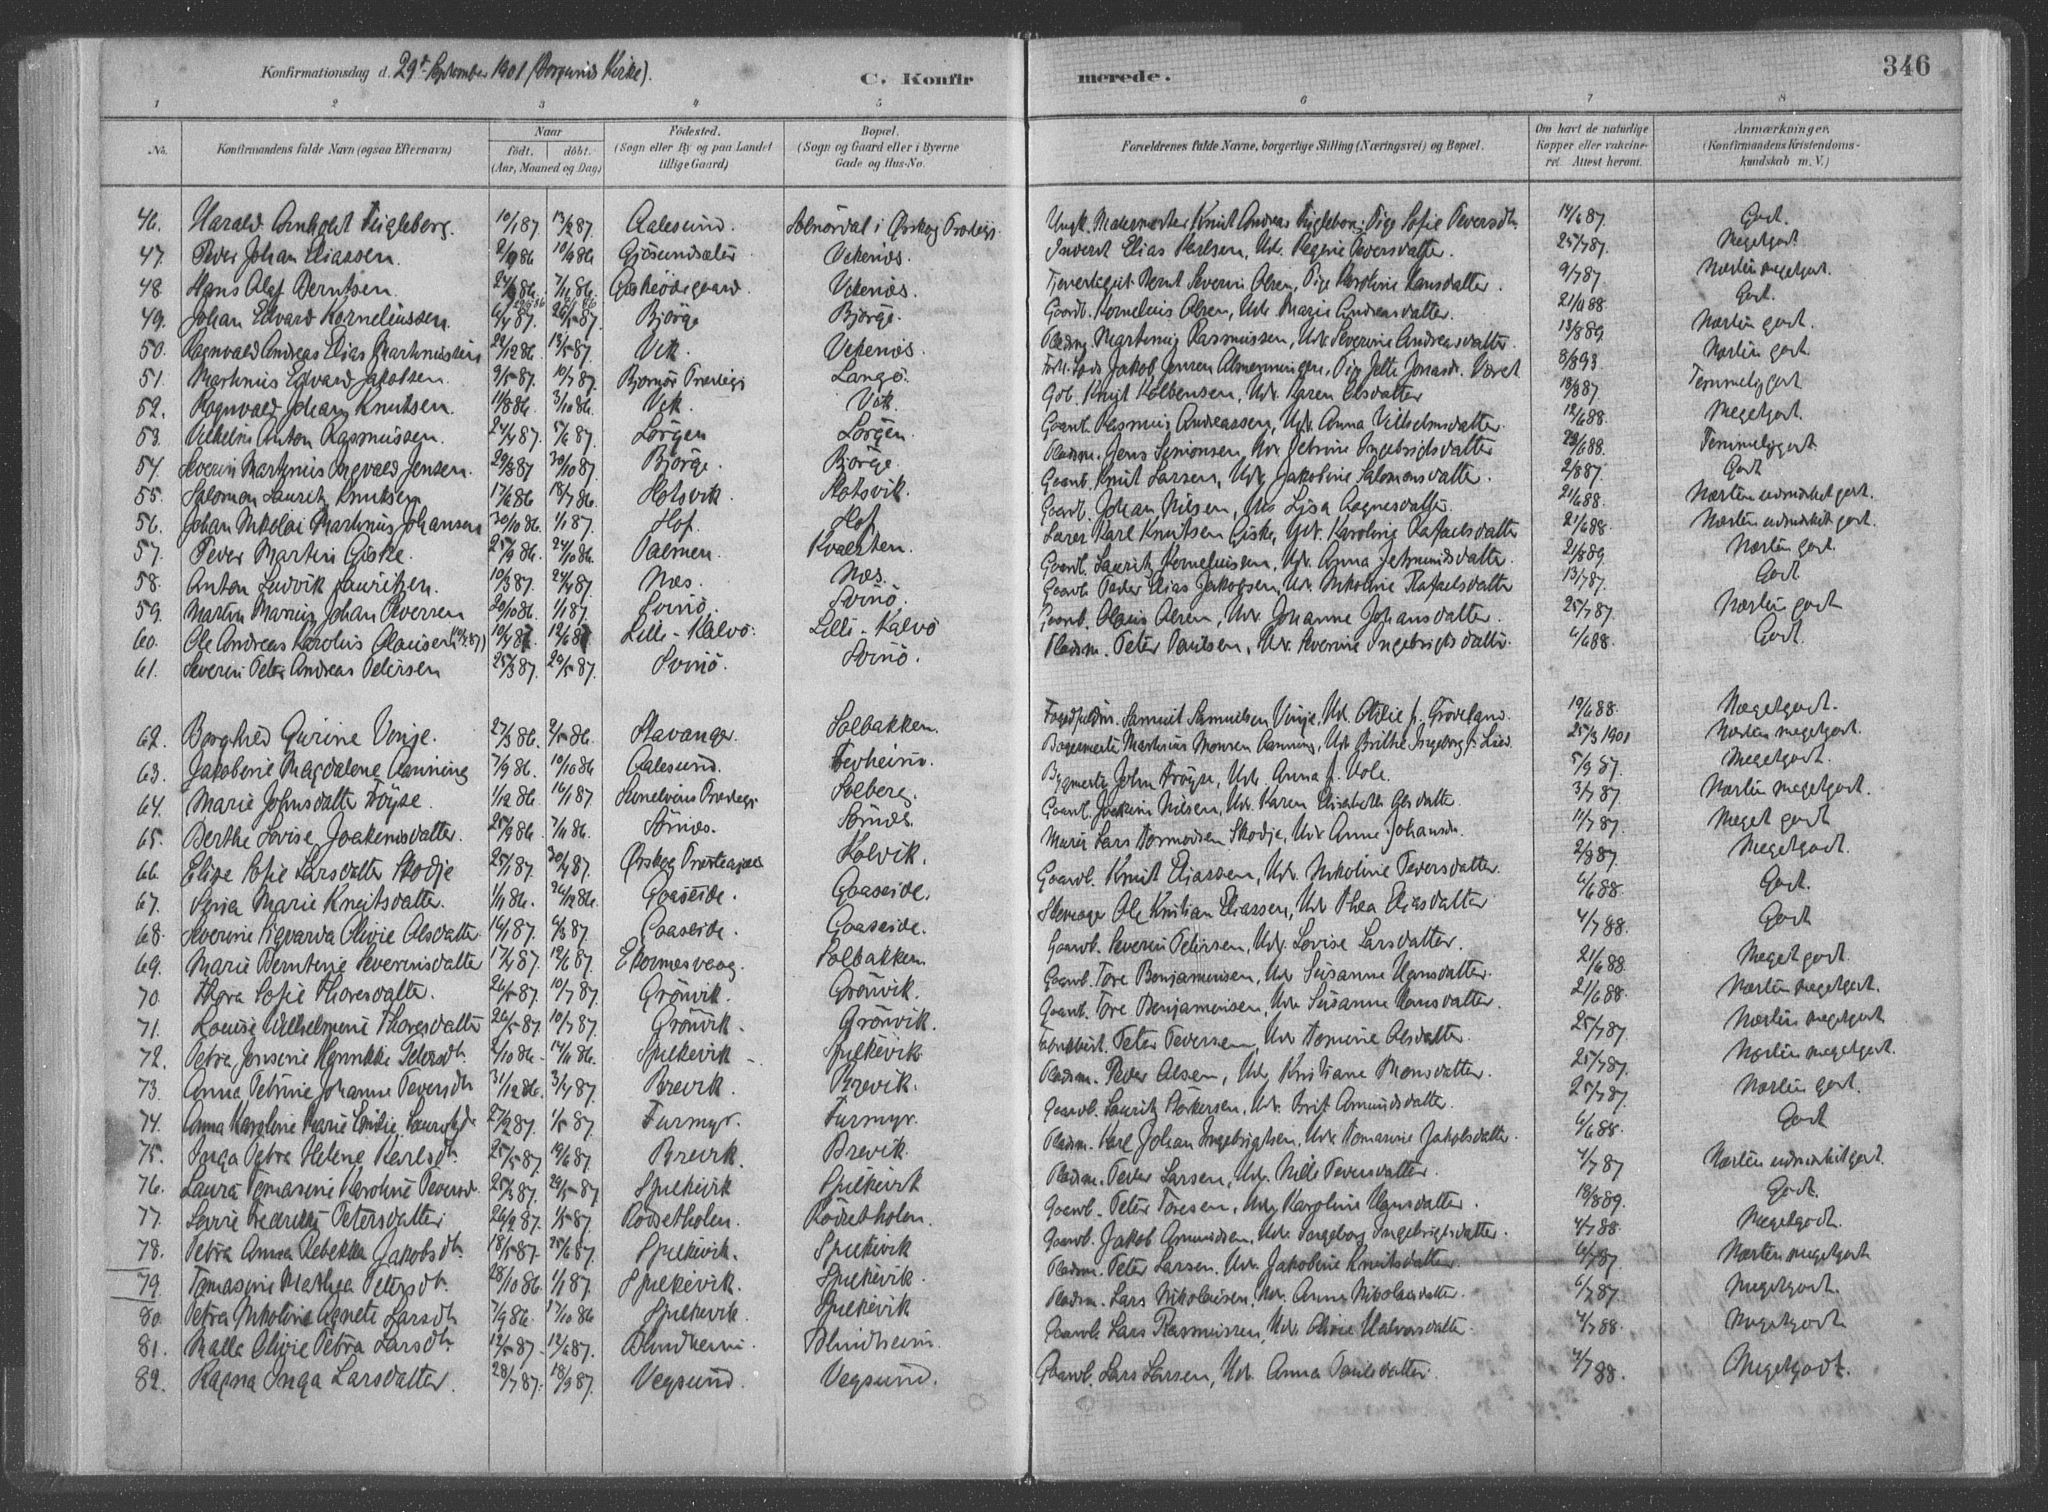 346
Konfirmationsdag d. 29de September 1901 (Borgunds Kirke).
C. Konfirmerede.
1 2 3 4 5 6 7 8
No. Konfirmandens fulde Navn (ogsaa Efternavn) Naar født. døbt. (Aar, Maaned og Dag) Fødested. (Sogn eller By og paa Landet tillige Gaard) Bopæl. (Sogn og Gaard eller i Byerne Gade og Hus-No. Forældrenes fulde Navne, borgerlige Stilling (Næringsvei) og Bopæl. Om havt de naturlige Kopper eller vaccineret. Attest herom. Anmærkninger. (Konfirmandens Kristendomskundskab m. V.)
46. Harald Arnholdt 10/1 87. 13/2 87. Aalesund. i Ørskog Knut Andreas Pige Sofie Peversdtr 14/6 87. Godt.
47. Peder Johan Eliassen. 2/9 86 10/9 86 Vikenæs. Elias Karlsen, Udv. Peversdatter. 25/7 87. Megetgodt
48. Hans Olaf Berntsen. 7/11 86. Vikenæs. Bernt Severin Olsen, Pige Karoline Hansdatter. 9/7 87 Næsten megetgodt.
49. Johan Edvard Korneliussen. Bjørge Bjørge. Gaardb. Kornelius Olsen, Udv. Marie Andreasdatter. Godt.
50. Ragnvald Andreas Elias Martinussen 22/12 86. 13/5 87. Vik. Vikenæs. Pladsm. Martinus Rasmussen, Udv. Severine Andreasdatter. 13/8 89. Næsten godt.
51. Martinus Edvard Jakobsen. 9/5 87. 10/7 87. Bjørnør Langø. Jakob Jensen Pige Jette Jonasdr. 8/8 93 Næsten godt.
52. Ragnvald Johan Knutsen. 11/8 86. 3/10 86. Vik. Vik. Knut Kolbensen, Udv. Karen Olsdatter 18/8 87. Temmeliggodt
53. Vilhelm Anton Rasmussen. 24/4 87. 5/6 87. Sørgen Sørgen. Gaardb. Rasmus Andreassen, Udv. Anna Vilhelmsdatter. 12/6 88. Megetgodt.
54. Severin Martinus Ingvald Jensen. 29/8 87 30/10 87 Bjørge. Bjørge. Pladsm. Jens Simonsen, Udv. Jetrine Ingebrigtsdatter. 23/6 88. Temmeliggodt.
55. Salomon Lauritz Knutsen 17/6 86. 18/7 86. Flotsvik. Flotsvik. Gaardb. Knut Larsen, Udv. Jakobine Salomonsdatter. 2/8 87. Godt
56. Johan Nikolai Martinus Johansen 30/10 86. 1/1 87. Hof. Hof. Gaardb. Johan Nilsen, Udv. Lisa Aagnesdatter. 21/6 88. Næsten udmærket godt.
57. Peder Martin Giske. 25/9 86. 24/10 86. Palmen. Kverten. Lærer Karl Knutsen Giske, Udv. Karoline Rafaelsdatter 21/6 88. Næsten udmærket godt.
58. Anton Ludvik Lauritzen. 10/3 87. 24/4 87. Næs. Næs. Gaardb. Lauritz Korneliussen, Udv. Anna Jetmundsdatter. 21/8 89 Næsten godt.
59. Martin Marius Johan Pedersen 20/10 86. 1/1 87. Svinø. Svinø. Gaardb. Peder Elias Jakobsen, Udv. Nikoline Rafaelsdatter 13/7 87. Godt
60. Ole Andreas Karolius Olausen 10/4 87 12/6 87 Lille-Kalvø. Lille-Kalvø Gaardb. Olaus Olsen, Udv. Johanne Johansdatter. 25/7 87. Næsten godt
61. Severin Peter Andreas Petersen 25/3 87. 29/5 87. Svinø. Svinø. Pladsm. Peter Paulsen, Udv. Severine Ingebrigtsdatter. 6/6 88. Godt.
62. Borghild Gurine Vinje. 27/3 86. 2/5 86. Stavanger. Solbakken. Samuel Samuelsen Vinje, Ud. Otilie f. 19/6 88. Megetgodt.
63. Jakobine Magdalene Aanning 7/9 86. 10/10 86. Aalesund. Bagermester Martinus Monsen Aanning, Udv. Brithe Ingeborg f. 25/3 1901 Næsten megetgodt.
64. Marie Johnsdatter Frøyse. 1/12 86. 16/1 87. Solberg. Bygmester John Frøyse, Udv. Anna f. Vole. 5/9 87. Megetgodt.
65. Berthe Lovise Joakimsdatter. 25/9 86. 7/11 86. Sørnæs. Sørnæs. Gaardb. Joakim Nilsen, Udv. Karen Elisabeth Olsdatter. 3/7 87. Næsten megetgodt.
66. Elise Sofie Larsdatter Skodje 25/1 87. 30/4 87. Ørskog Præstegjæld Holvik. Murer Lars Tormodsen Skodje, Udv. Anne Johansdr. 11/7 87. Meget godt
67. Syna Marie Knutsdatter. 1/11 86. 26/12 86. Gaaseide. Gaaseide. Gaardb. Knut Eliassen, Udv. Nikoline Peversdatter. 2/8 87. Megetgodt.
68. Severine Sigvarda Olivie Olsdatter 16/1 87. 6/3 87. Gaaseide. Gaaseide. Ole Kristian Eliassen, Udv. Thea Eliasdatter 6/6 88. Godt.
69. Marie Berntine Severinsdatter 17/4 87. 12/6 87. Ekornesvaag. Solbakken Gaardb. Severin Petersen, Udv. Lovise Larsdatter. 4/7 88. Godt
70. Thora Sofie Thoresdatter. 26/5 87. 10/7 87. Grønvik. Grønvik. Gaardb. Tore Benjaminsen, Udv. Susanne Hansdatter. 21/6 88. Meget godt.
71. Lovise Vilhelmine Thoresdatter 26/5 87. 10/7 87. Grønvik. Grønvik. Gaardb. Tore Benjaminsen, Udv. Susanne Hansdatter. 21/6 88. Næsten megetgodt.
72. Petra Jensine Henrikke Petersdtr 2/10 86. 14/11 86. Spilkevik Spilkevik Peter Pedersen, Udv. Tomine Olsdatter. 25/7 87. Næsten megetgodt
73. Anna Petrine Johanne Pedersdtr 31/12 86. 3/4 87. Brevik. Brevik. Pladsm. Peder Olsen, Udv. Kristiane Monsdatter. 25/7 87. Næsten megetgodt.
74. Anna Karoline Marie Emilie Lauritzdr 27/2 87. 1/5 87. Furmyr. Furmyr. Gaardb. Lauritz Udv. Brit Amundsdatter. 25/7 87. Næsten godt.
75. Inga Petra Helene Karlsdtr. 25/5 87 19/6 87. Brevik. Brevik. Pladsm. Karl Johan Ingebrigtsen, Udv. Tomasine Jakobsdatter. 6/6 88. Godt
76. Laura Tomasine Karoline Peversd. 25/3 87. 29/5 87 Spilkevik Spilkevik Pladsm. Peder Larsen, Udv. Nille Peversdatter. 4/7 87 Næsten udmærketgodt.
77. Lovise Fredrikke Petersdatter 26/2 87. 1/5 87. Rødsetholen. Rødsetholen. Gaardb. Peter Toresen, Udv. Karoline Hansdatter. 18/8 89. Godt.
78. Petra Anna Rebekka Jakobsdtr. 18/5 87. 25/6 87. Spilkevik. Spilkevik Gaardb. Jakob Amundsen, Udv. Ingeborg Ingebrigtsdatter. 4/7 88 Megetgodt.
79. Tomasine Mathea Petersdtr. 28/10 86. 1/1 87. Spilkevik. Spilkevik. Pladsm. Peter Larsen, Udv. Jakobine Knutsdatter 6/7 87 Næsten megetgodt
80. Petra Nikoline Agnete Larsdtr 7/9 86. 17/10 86 Spilkevik. Spilkevik Pladsm. Lars Nikolaisen, Udv. Anna Nikolaisdatter. 6/7 87. Megetgodt.
81. Malla Olivie Petra Larsdtr. 12/5 87. 12/6 87. Blindheim. Blindheim. Gaardb. Lars Rasmussen, Udv. Olivie Halvorsdatter. 4/7 88. Megetgodt.
82. Ragna Inga Larsdatter. 28/7 87. 18/9 87. Vegsund. Vegsund. Gaardb. Lars Larsen, Udv. Anna Paulsdatter. 4/7 88. Megetgodt.